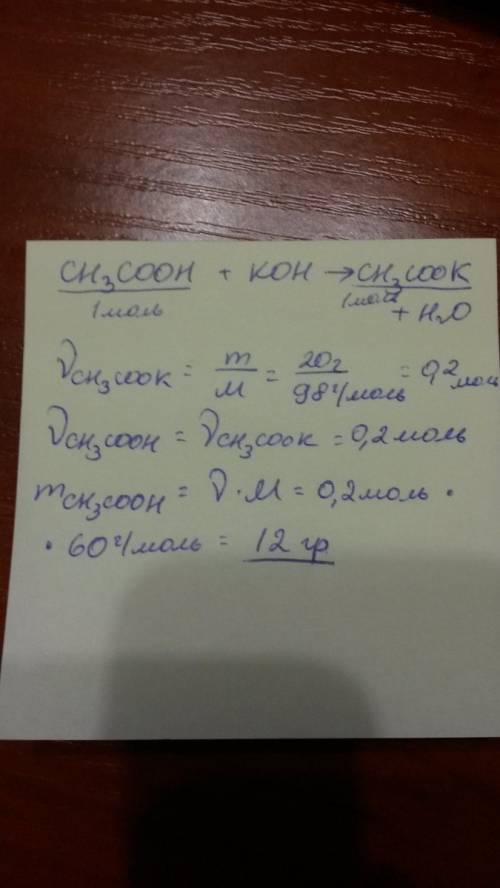 CH₃COOH + KOH → CH₃COOK
1моль 1моль + H₂O
ν CH₃COOK = m/M = 20г/98г/моль = 0,2 моль
ν CH₃COOH = ν CH₃COOK = 0,2 моль
m CH₃COOH = ν · M = 0,2 моль ·
· 60 г/моль = 12 гр